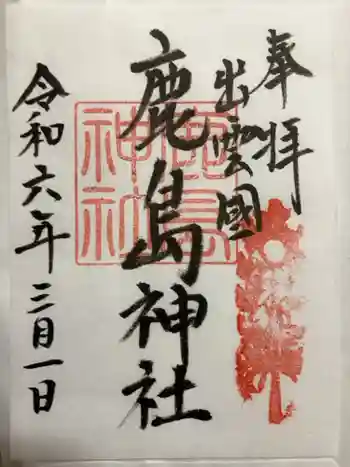 奉拝
出雲國
鹿島神社
鹿島
神社
令和六年三月一日